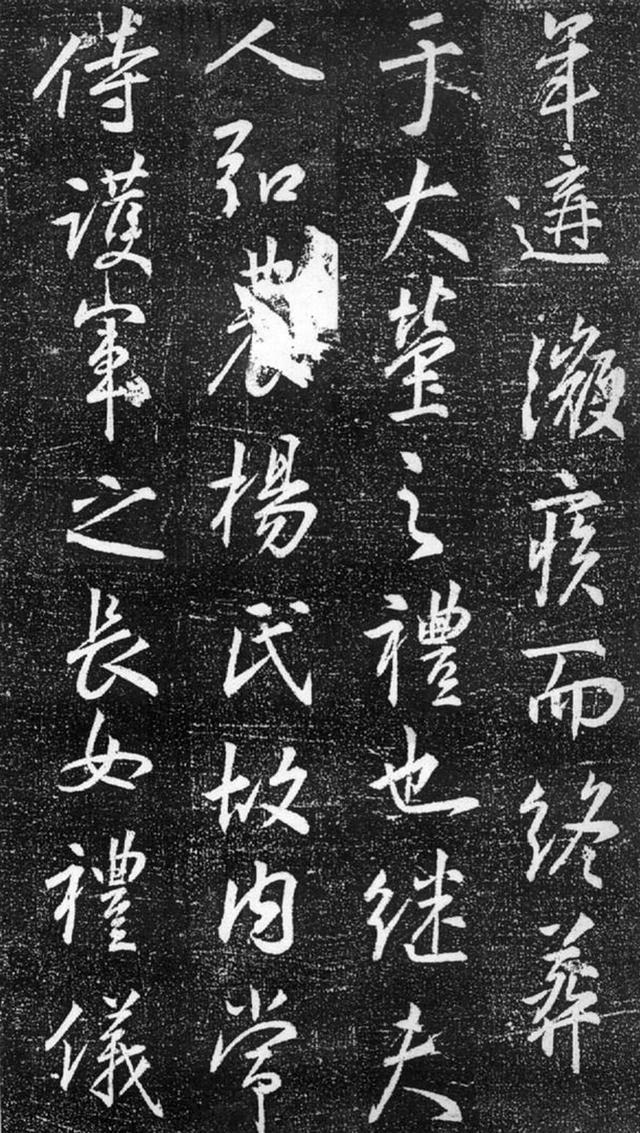 年遘疾而終葬
于大塋之禮也継夫
人弘農楊氏故内常
侍護軍之長女禮儀